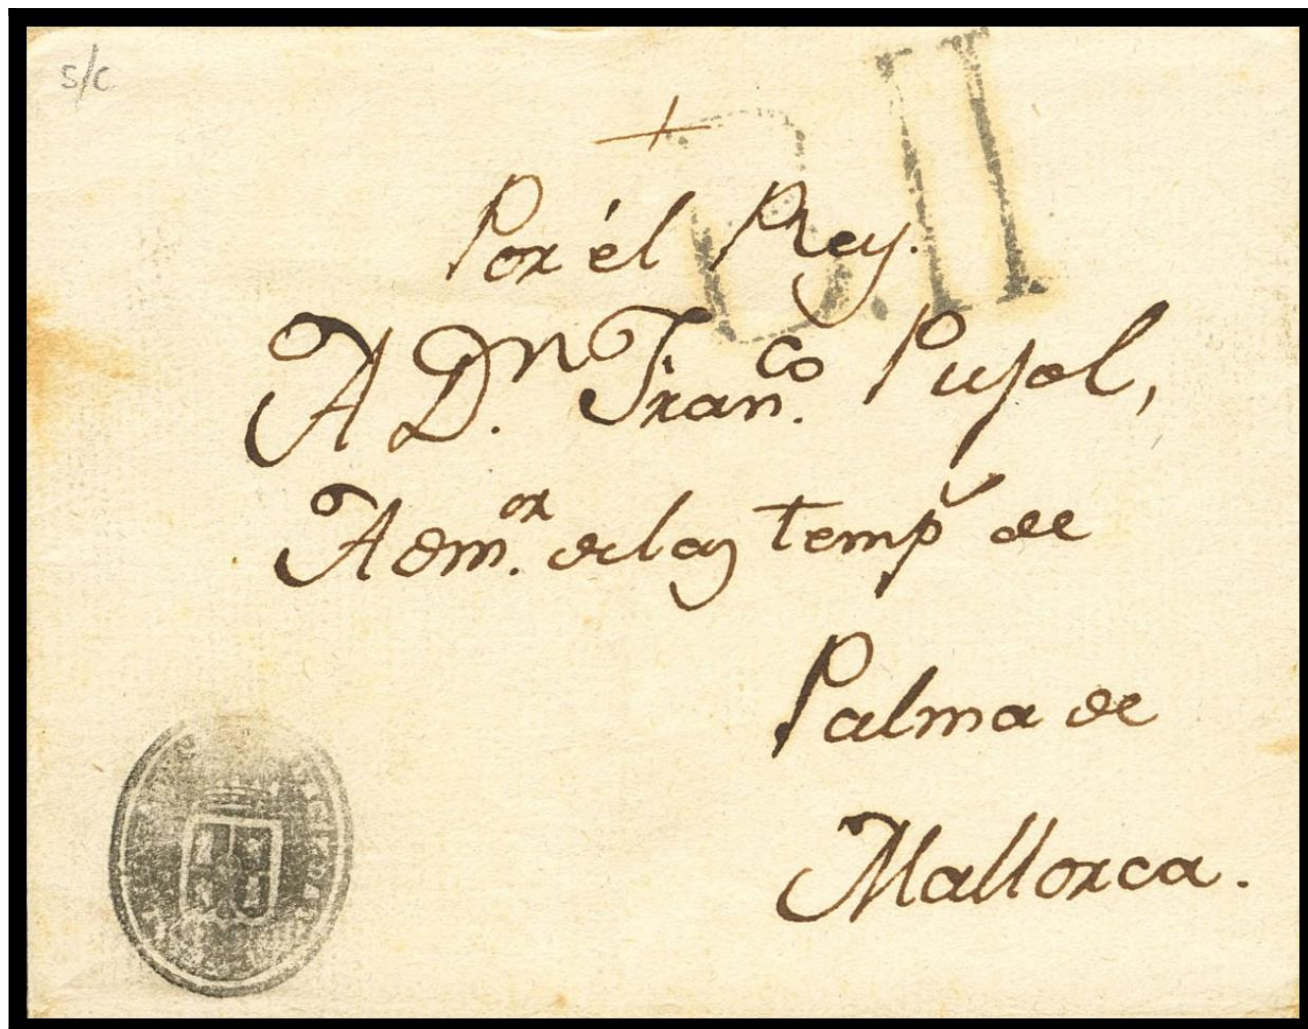 S/C
+
Por él Rey.
A Dⁿ. Fran.ᶜᵒ Pujol,
Adm.ᵒʳ de las temp.ˢ de
Palma de
Mallorca.